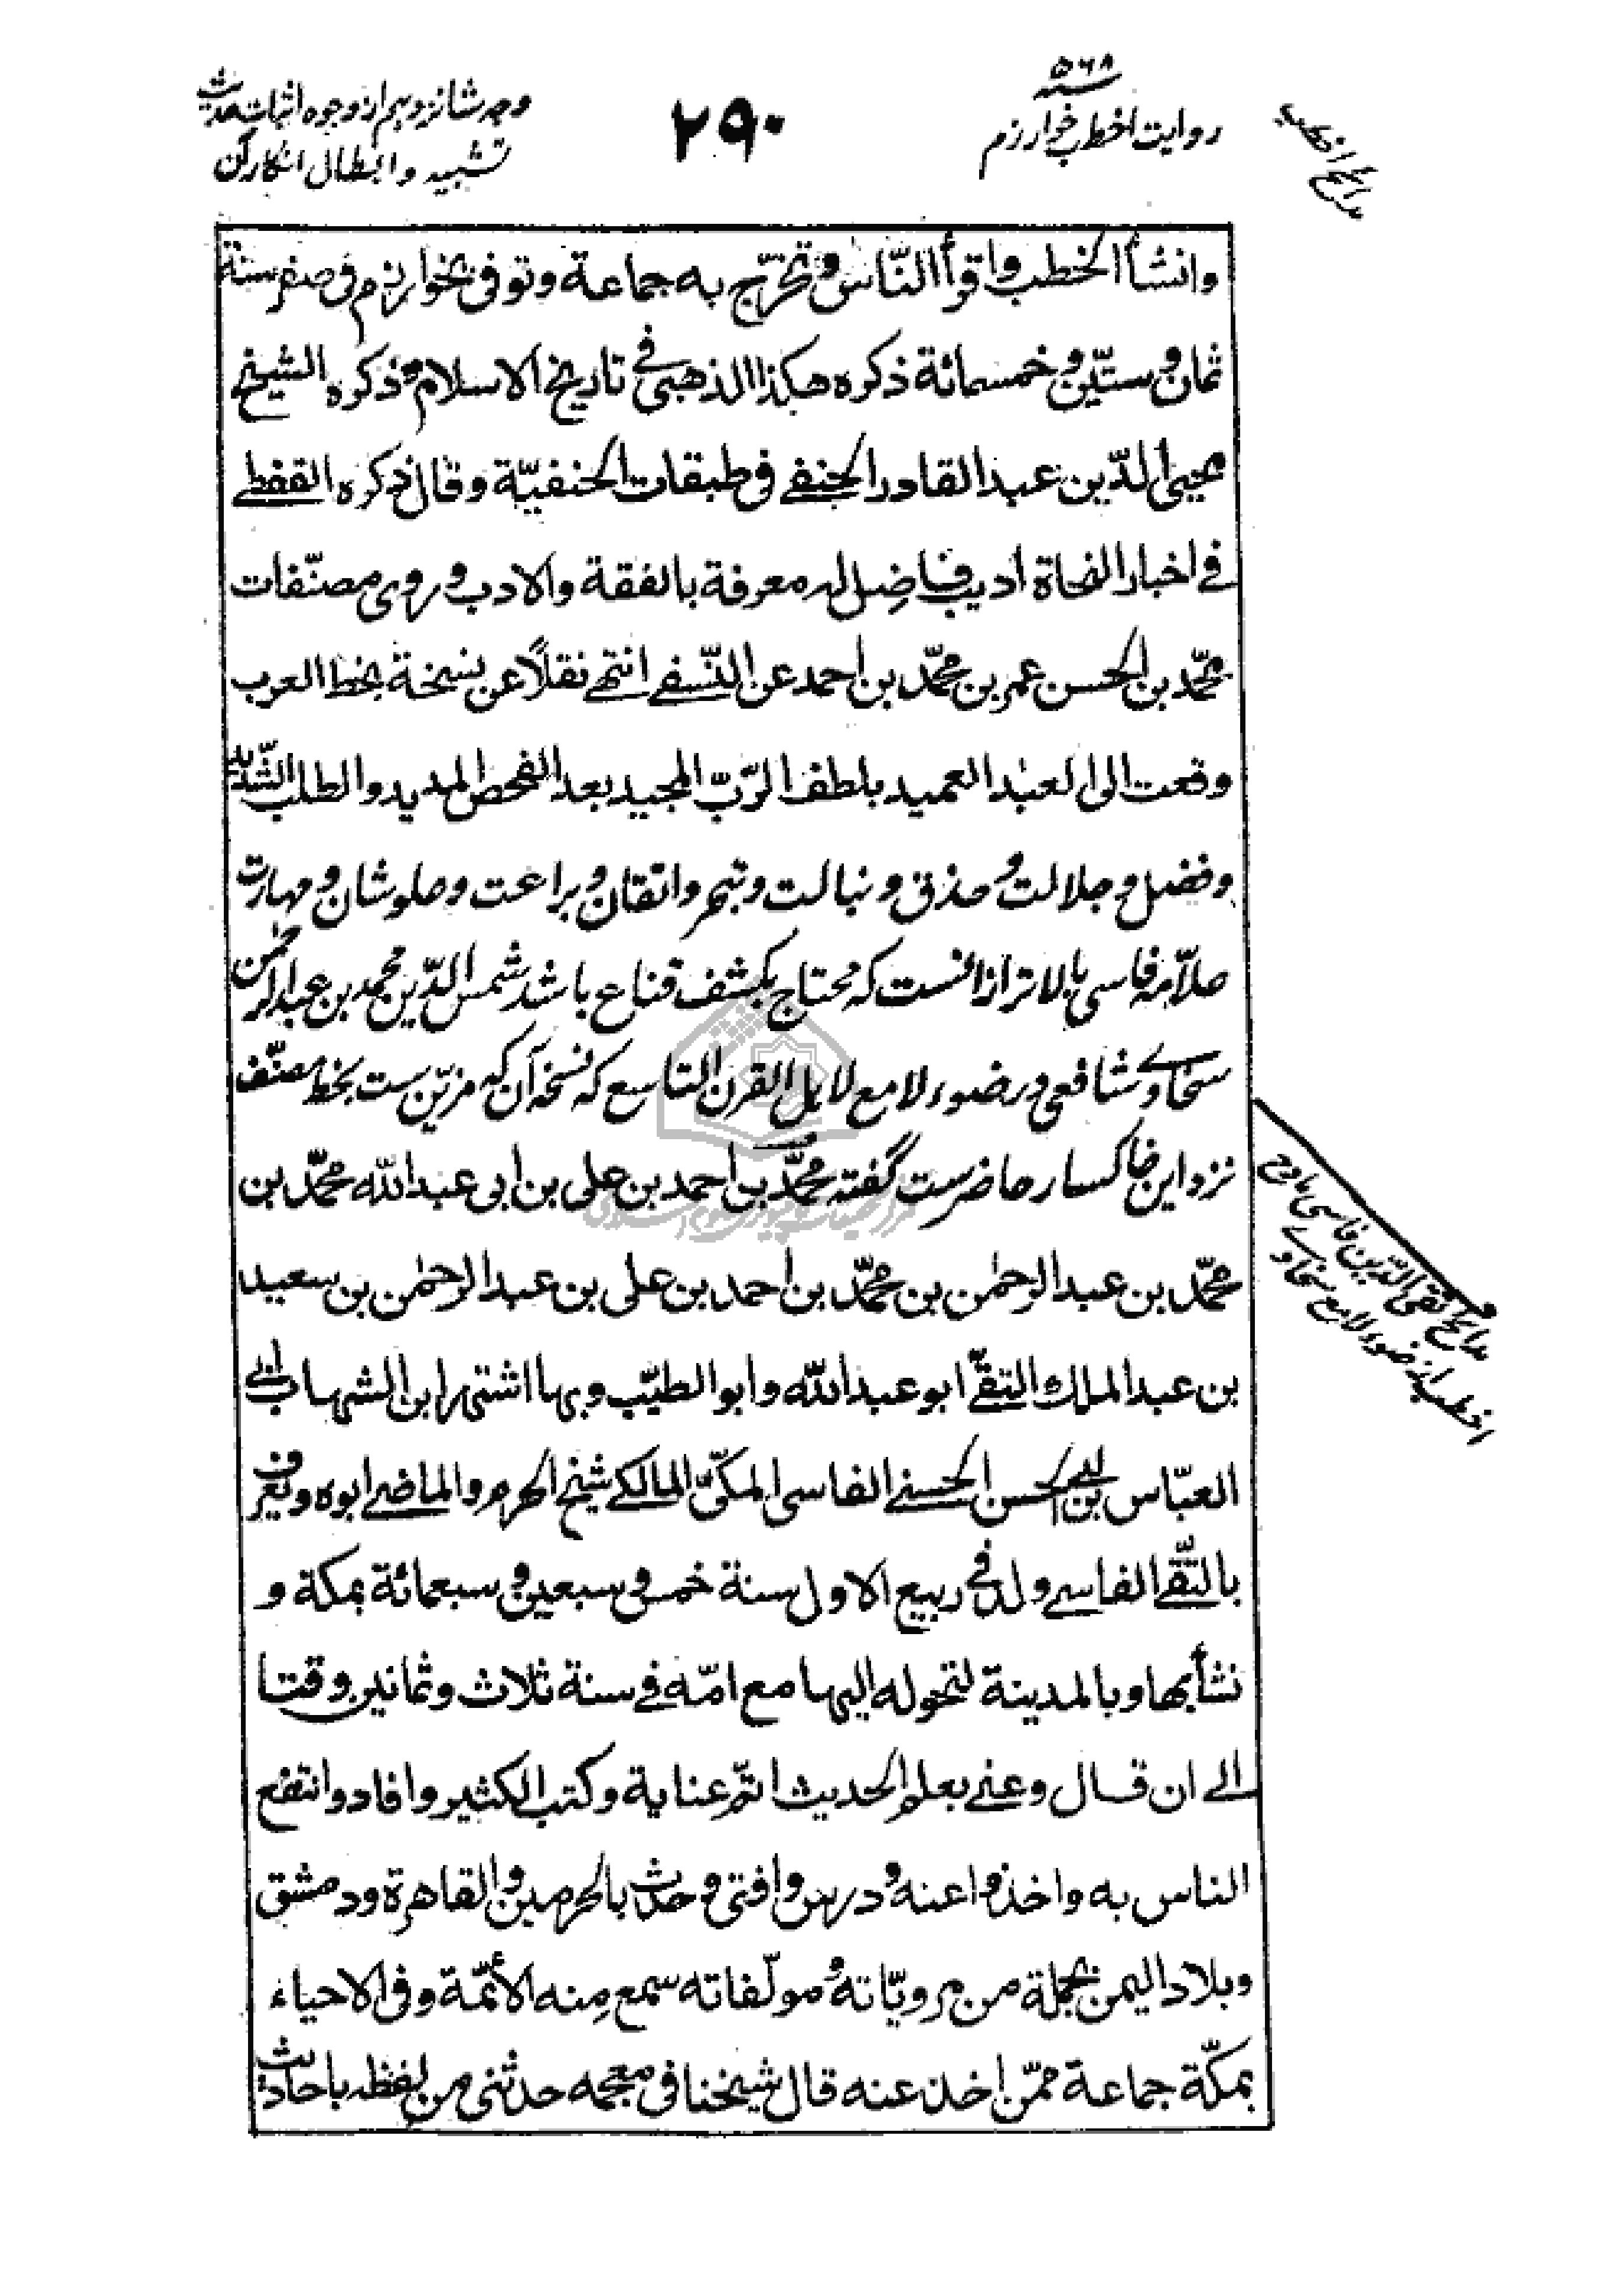 ۵۶۸
روایت اخطب خوارزم
۲۹۰
وجه شانزدهم از وجوه اثبات حدیث
تشبیه و ابطال انکار آن
مدایح اخطب
وانشأ الخطب واقرأ النّاس وتخرّج به جماعة وتوفی بخوارزم فی صفر سنة
ثمان وستّین وخمسمائة ذکره هکذا الذهبی فی تاریخ الاسلام وذکره الشیخ
محیی الدّین عبد القادر الحنفی فی طبقات الحنفیّة وقال ذکره القفطی
فی اخبار النحاة ادیب فاضل له معرفة بالفقة والادب وروی مصنّفات
محمّد بن الحسن عمر بن محمّد بن احمد عن النّسفی انتهی نقلاً عن نسخة بخط العرب
وقعت الی العبد العمید بلطف الرّبّ المجید بعد الفحص المدید والطلب الشّدید
وفضل و جلالت و حذق و نبالت و تبحر واتقان و براعت و علوشان و مهارت
علاّمه فاسی بالاتر از انست که محتاج بکشف قناع باشد شمس الدّین محمد بن عبد الرحمٰن
سخاوی شافعی در ضوء لامع لاهل القرن التاسع که نسخه آن که مزیّن ست بخط مصنّف
نزد این خاکسار حاضرست گفته محمّد بن احمد بن علی بن ابی عبد الله محمّد بن
محمّد بن عبد الرحمٰن بن محمّد بن احمد بن علی بن عبد الرحمٰن بن سعید
بن عبد الملك التقیّ ابو عبد الله وابو الطیّب وبها اشتهر ابن الشهاب ابی
العبّاس بن ابی الحسن الحسنی الفاسی المکیّ المالکی شیخ الحرم والماضی ابوه ویعرف
بالتّقی الفاسی ولد فی ربیع الاول سنة خمس وسبعین وسبعمائة بمکة و
نشأ بها وبالمدینة لتحوله الیها مع امّه فی سنة ثلاث وثمانین وقتا
الی ان قال وعنی بعلم الحدیث اتمّ عنایة وکتب الکثیر وافاد وانتفع
الناس به واخذوا عنه ودرس وافتی وحدث بالحرمین والقاهرة ودمشق
وبلاد الیمن بجملة من مرویّاته ومولّفاته سمع منه الأئمّة وفی الاحیاء
بمکّة جماعة ممّن اخذ عنه قال شیخنا فی معجمه حدثنی من لفظه باحادیث
مدایح تقی الدّین فاسی مادح
اخطب از ضوء لامع سخاوی